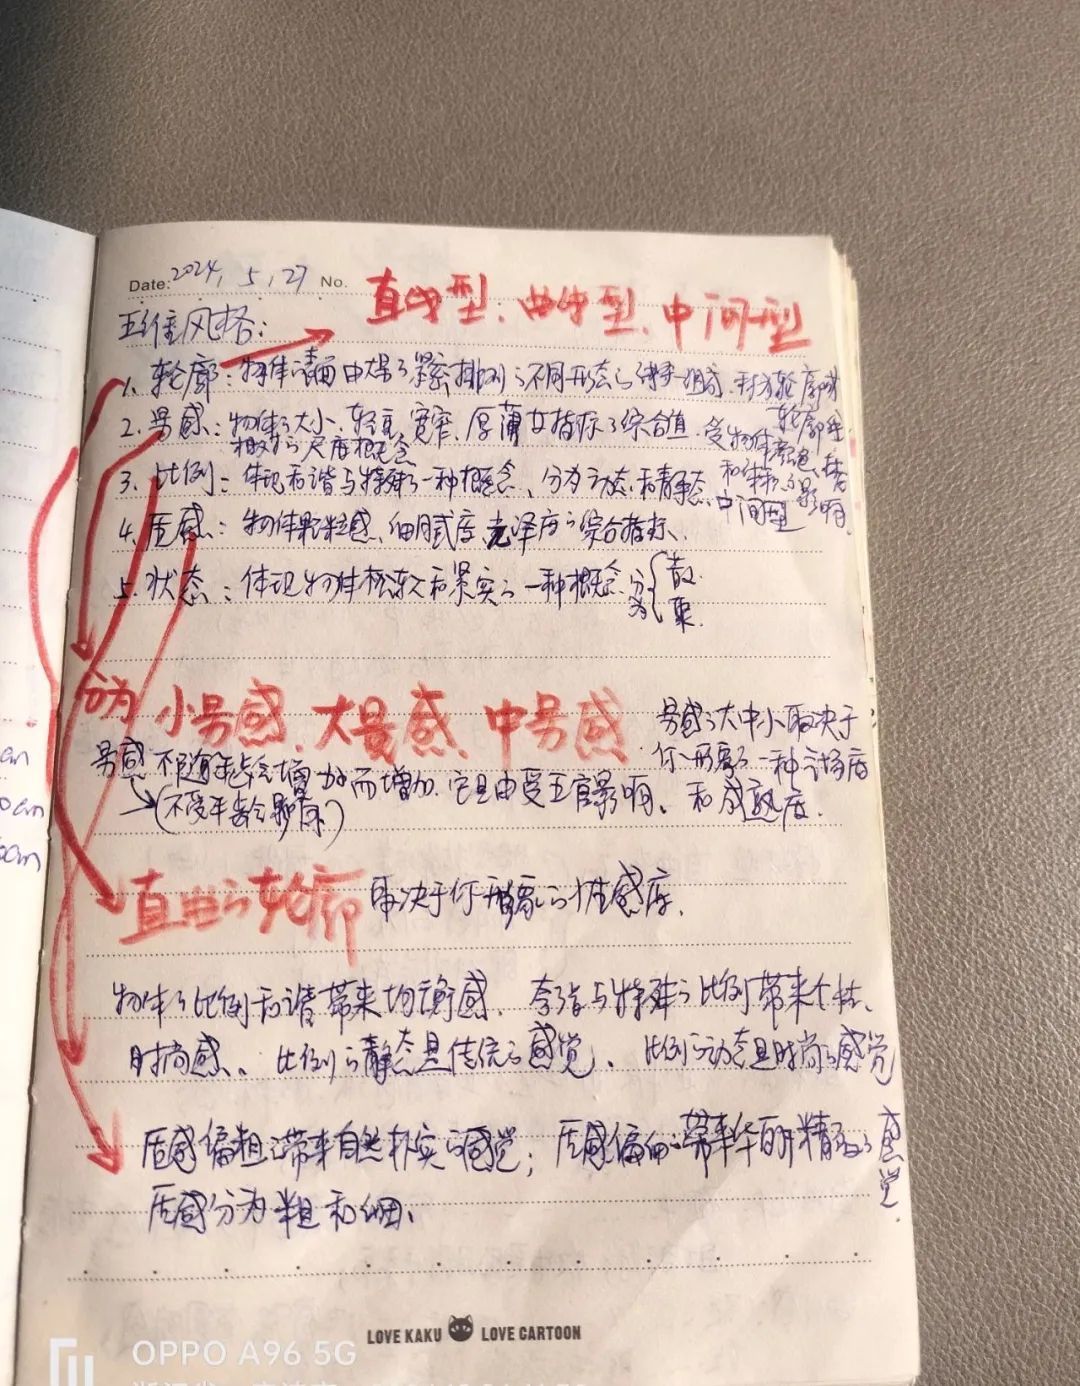 Date: 2024, 5, 27 No.
直线型、曲线型、中间型
五维风格:
1. 轮廓: 物体表面由大量的紧密排列的不同形态的线条组成
轮廓型
2. 号感: 物体的大小、轻重、宽窄、厚薄 指标的综合值. 受物体颜色
相对的尺度概念
和体积的影响.
3. 比例: 体现和谐与特殊的一种概念、分为动态和静态、中间型
4. 质感: 物体颗粒感、细腻度、光泽度的综合指标、
5. 状态: 体现物体松软和紧实的一种概念 分为 散. 聚.
分为 小号感、大号感、中号感
号感的大中小取决于
你形象的一种 度
号感不随年龄会增加而增加. 它且由受五官影响、和成熟度.
(不受年龄影响)
直曲的轮廓 取决于你形象的性感度.
物体的比例和谐带来均衡感、夸张与特殊的比例带来个性、
时尚感、比例的静态是传统的感觉、比例的动态且时尚的感觉
质感偏粗的带来自然朴实的感觉; 质感偏细的带来华丽精致的感觉.
质感分为粗和细、
cm
0cm
5cm
LOVE KAKU LOVE CARTOON
OPPO A96 5G